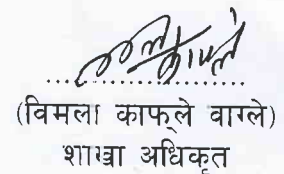 ..........................
(विमला काफ्ले वाग्ले)
शाखा अधिकृत